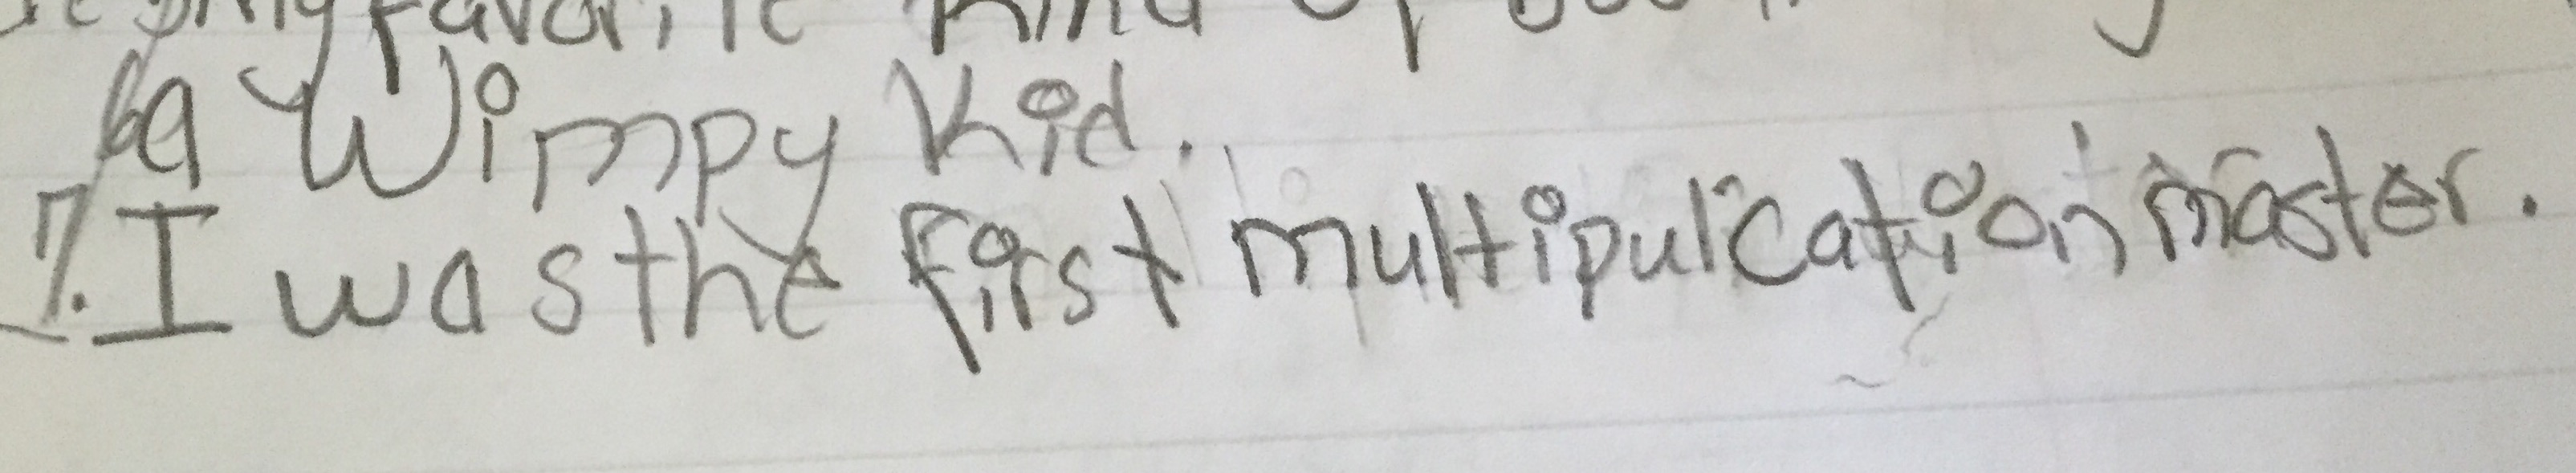 my favorite kind of
a Wimpy Kid.
7. I was the first multipulication master.